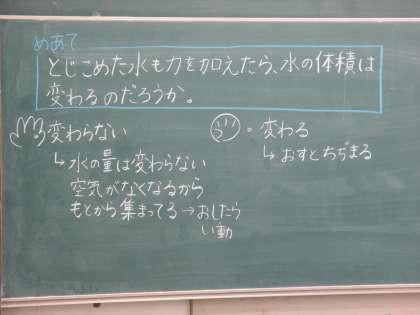 めあて
とじこめた水も力を加えたら、水の体積は
変わるのだろうか。
変わらない
↳水の量は変わらない
空気がなくなるから
もとから集まってる→おしたら
い動
・変わる
↳おすとちぢまる